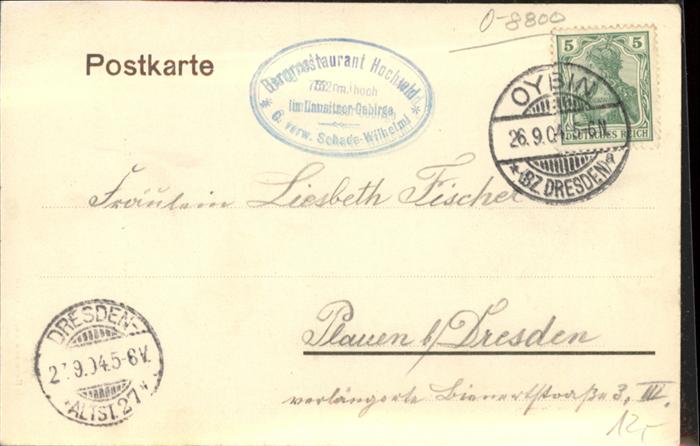 O-8800
Postkarte
Bergrestaurant Hochwald
752 m. hoch
im Lausitzer Gebirge
G. verw. Schade-Wilhelmi
5
DEUTSCHES REICH
OYBIN
26.9.04. 5-6N
*(BZ. DRESDEN)*
Fräulein Liesbeth Fischer
Plauen b/Dresden
verlängerte Bienertstraße 3, III.
DRESDEN-
27.9.04.5-6V.
*ALTST.27*
12,-